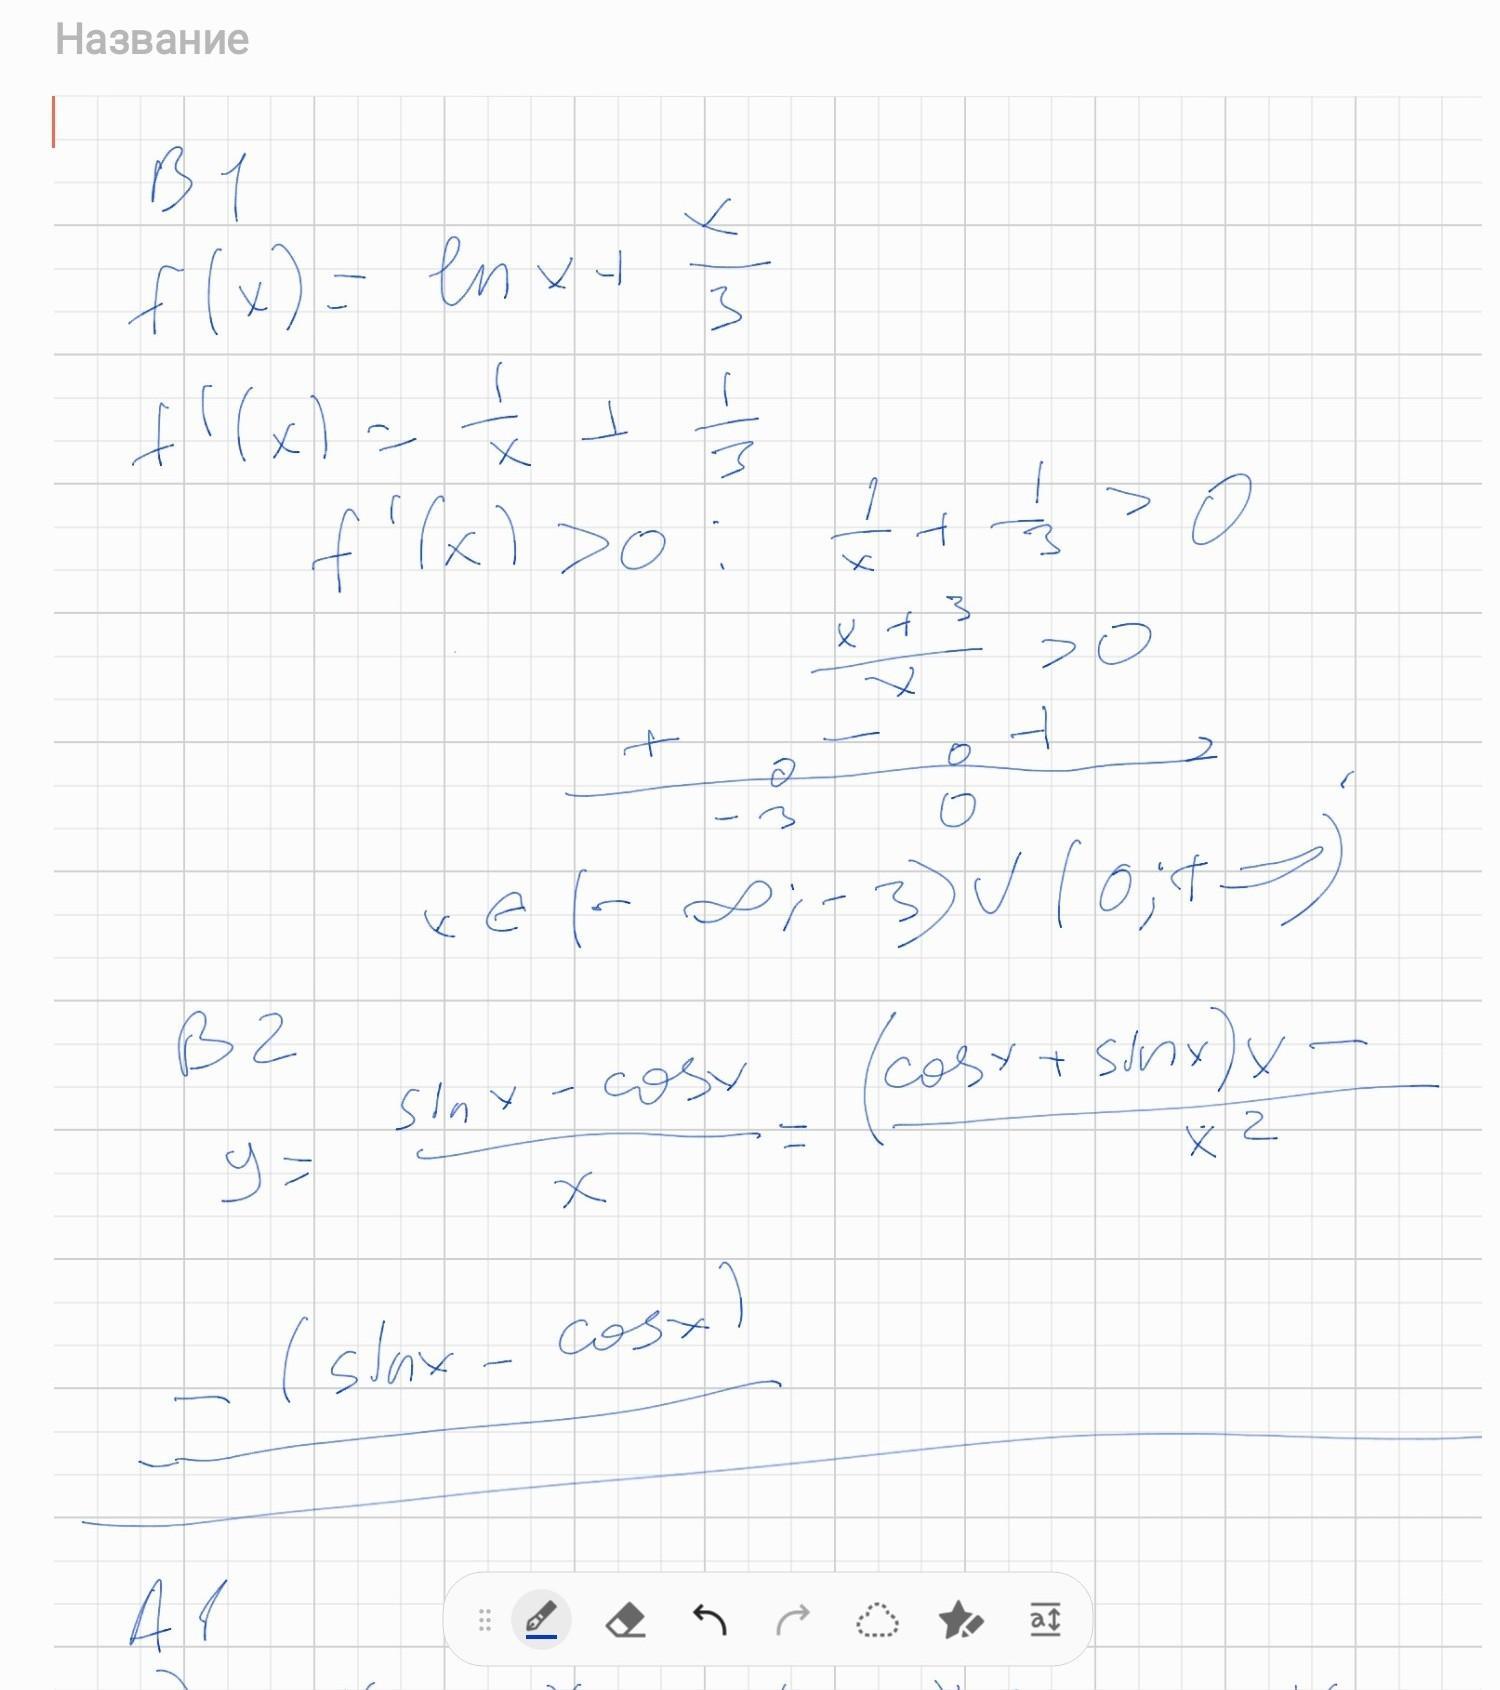 Название
B1
f(x) = ln x + x/3
f'(x) = 1/x + 1/3
f'(x) > 0 : 1/x + 1/3 > 0
(x + 3)/x > 0
+ - +
-3 0
x ∈ (-∞; -3) ∪ (0; +∞)
B2
y = (sin x - cos x)/x = ((cos x + sin x) x -)/x²
- (sin x - cos x)
A1